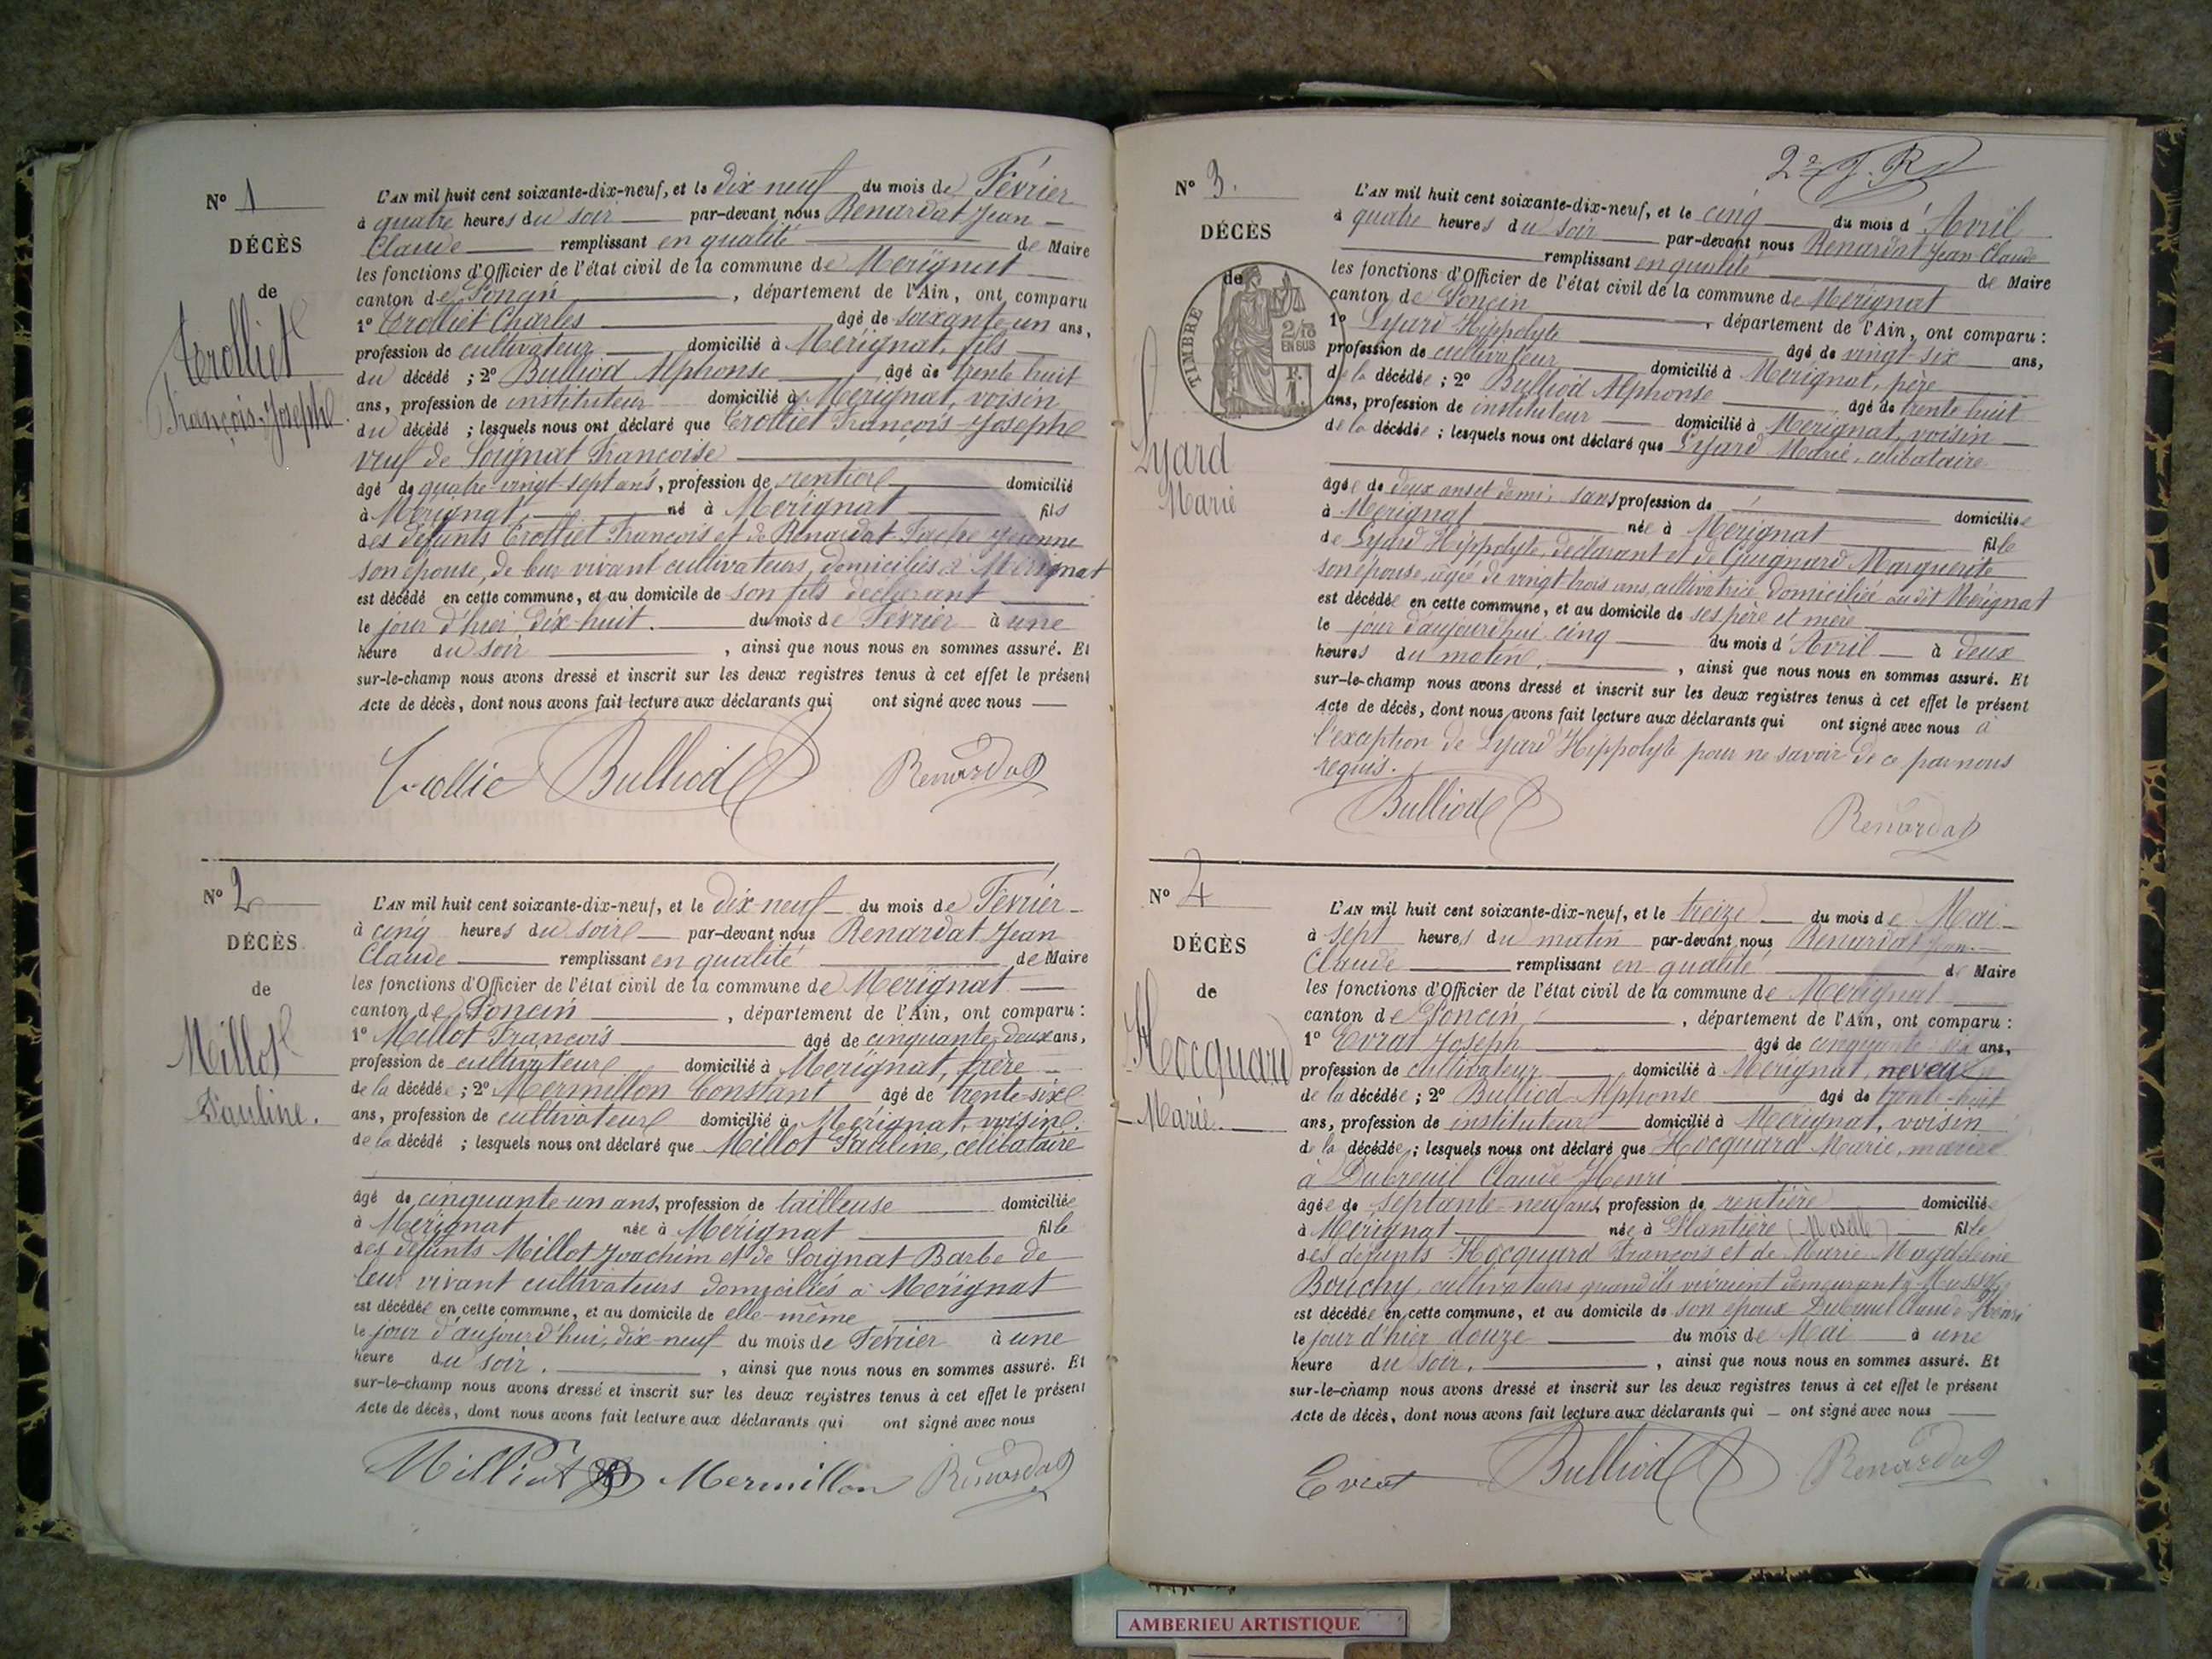 N° 1
DÉCÈS
de
Trolliet
François-Josephe
L'AN mil huit cent soixante-dix-neuf, et le dix neuf du mois de Février
à quatre heures du soir par-devant nous Renardat Jean
Claude remplissant en qualité de Maire
les fonctions d'Officier de l'état civil de la commune de Mérignat
canton de Poncin, département de l'Ain, ont comparu
1° Trolliet Charles âgé de soixante-un ans,
profession de cultivateur domicilié à Mérignat, fils
du décédé ; 2° Bulliod Alphonse âgé de trente huit
ans, profession de instituteur domicilié à Mérignat, voisin
du décédé ; lesquels nous ont déclaré que Trolliet François-Josephe
veuf de Soignat Francoise
âgé de quatre-vingt-sept ans, profession de rentier domicilié
à Mérignat, né à Mérignat fils
des défunts Trolliet François et de Renardat Jeanne
son épouse, de leur vivant cultivateurs, domiciliés à Mérignat
est décédé en cette commune, et au domicile de son fils déclarant
le jour d'hier, dix-huit. du mois de Février à une
heure du soir, ainsi que nous nous en sommes assuré. Et
sur-le-champ nous avons dressé et inscrit sur les deux registres tenus à cet effet le présent
Acte de décès, dont nous avons fait lecture aux déclarants qui ont signé avec nous
Trollie Bulliod Renardat
N° 2
DÉCÈS
de
Millot
Pauline.
L'AN mil huit cent soixante-dix-neuf, et le dix neuf du mois de Février
à cinq heures du soir par-devant nous Renardat Jean
Claude remplissant en qualité de Maire
les fonctions d'Officier de l'état civil de la commune de Mérignat
canton de Poncin, département de l'Ain, ont comparu :
1° Millot François âgé de cinquante-deux ans,
profession de cultivateur domicilié à Mérignat, frère
de la décédée ; 2° Mermillon Constant âgé de trente-six
ans, profession de cultivateur domicilié à Mérignat, voisin
de la décédé ; lesquels nous ont déclaré que Millot Pauline, célibataire
âgé de cinquante-un ans, profession de tailleuse domiciliée
à Mérignat née à Mérignat fille
des défunts Millot Joachim et de Soignat Barbe de
leur vivant cultivateurs domiciliés à Mérignat
est décédée en cette commune, et au domicile de elle-même
le jour d'aujourd'hui, dix-neuf du mois de Février à une
heure du soir., ainsi que nous nous en sommes assuré. Et
sur-le-champ nous avons dressé et inscrit sur les deux registres tenus à cet effet le présent
Acte de décès, dont nous avons fait lecture aux déclarants qui ont signé avec nous
Milliot Mermillon Renardat
N° 3.
DÉCÈS
de
TIMBRE
2/10
EN SUS
Lyard
Marie
L'AN mil huit cent soixante-dix-neuf, et le cinq du mois d'Avril
à quatre heures du soir par-devant nous Renardat Jean Claude
remplissant en qualité de Maire
les fonctions d'Officier de l'état civil de la commune de Mérignat
canton de Poncin, département de l'Ain, ont comparu :
1° Lyard Hippolyte âgé de vingt-six ans,
profession de cultivateur domicilié à Mérignat, père
de la décédée ; 2° Bulliod Alphonse âgé de trente huit
ans, profession de instituteur domicilié à Mérignat, voisin
de la décédée ; lesquels nous ont déclaré que Lyard Marie, célibataire
âgée de deux ans et demi, sans profession de domiciliée
à Mérignat née à Mérignat fille
de Lyard Hippolyte, déclarant et de Guignard Marguerite
son épouse, âgée de vingt trois ans, cultivatrice domiciliée au dit Mérignat
est décédée en cette commune, et au domicile de ses père et mère
le jour d'aujourd'hui cinq du mois d'Avril à deux
heures du matin, ainsi que nous nous en sommes assuré. Et
sur-le-champ nous avons dressé et inscrit sur les deux registres tenus à cet effet le présent
Acte de décès, dont nous avons fait lecture aux déclarants qui ont signé avec nous à
l'exception de Lyard Hippolyte pour ne savoir de ce par nous
requis.
Bulliod Renardat
N° 4
DÉCÈS
de
Hocquard
Marie
L'AN mil huit cent soixante-dix-neuf, et le treize du mois de Mai
à sept heures du matin par-devant nous Renardat Jean
Claude remplissant en qualité de Maire
les fonctions d'Officier de l'état civil de la commune de Mérignat
canton de Poncin, département de l'Ain, ont comparu :
1° Evrat Joseph âgé de cinquante ans,
profession de cultivateur domicilié à Mérignat, neveu
de la décédée ; 2° Bulliod Alphonse âgé de trente-huit
ans, profession de instituteur domicilié à Mérignat, voisin
de la décédée ; lesquels nous ont déclaré que Hocquard Marie, mariée
à Dubreuil Claude Henri
âgée de septante-neuf ans, profession de rentière domiciliée
à Mérignat née à Plantière (Moselle) fille
des défunts Hocquard François et de Marie Magdeleine
Bouchy, cultivateurs quand ils vivaient demeurant à
est décédée en cette commune, et au domicile de son époux Dubreuil Claude Henri
le jour d'hier douze du mois de Mai à une
heure du soir, ainsi que nous nous en sommes assuré. Et
sur-le-champ nous avons dressé et inscrit sur les deux registres tenus à cet effet le présent
Acte de décès, dont nous avons fait lecture aux déclarants qui ont signé avec nous
Evrat Bulliod Renardat
AMBERIEU ARTISTIQUE